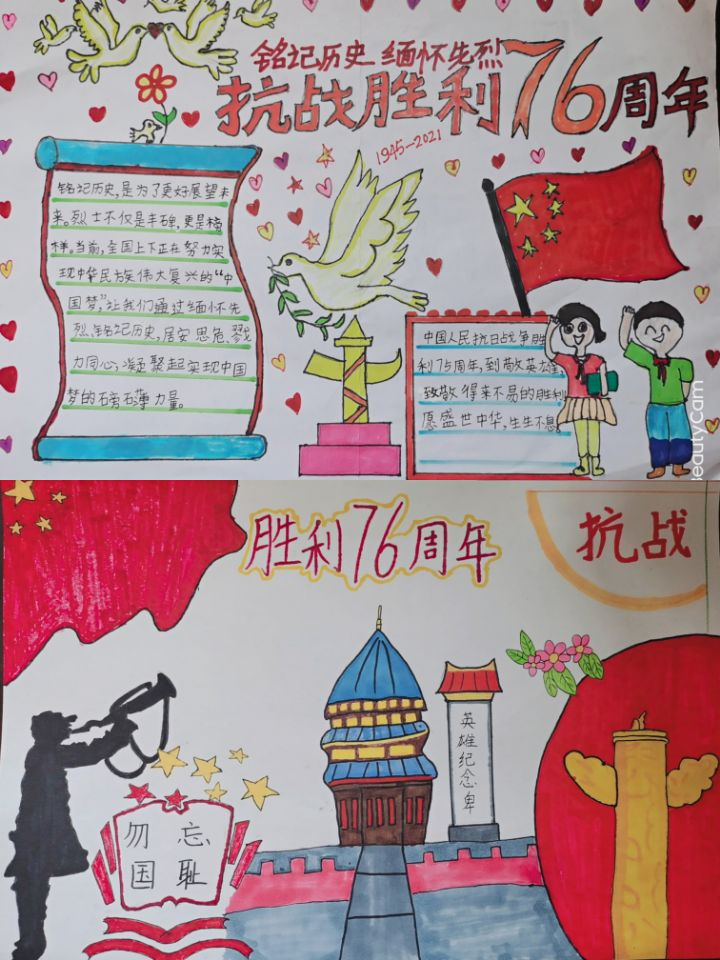 铭记历史 缅怀先烈
抗战胜利76周年
1945-2021
铭记历史,是为了更好展望未
来。烈士不仅是丰碑,更是榜
样。当前,全国上下正在努力实
现中华民族伟大复兴的“中
国梦”,让我们通过缅怀先
烈,铭记历史,居安思危,戮
力同心,凝聚起实现中国
梦的磅礴力量。
中国人民抗日战争胜
利75周年,到敬英雄,
致敬得来不易的胜利
愿盛世中华,生生不息。
BeautyCam
胜利76周年
抗战
英雄纪念碑
勿忘
国耻